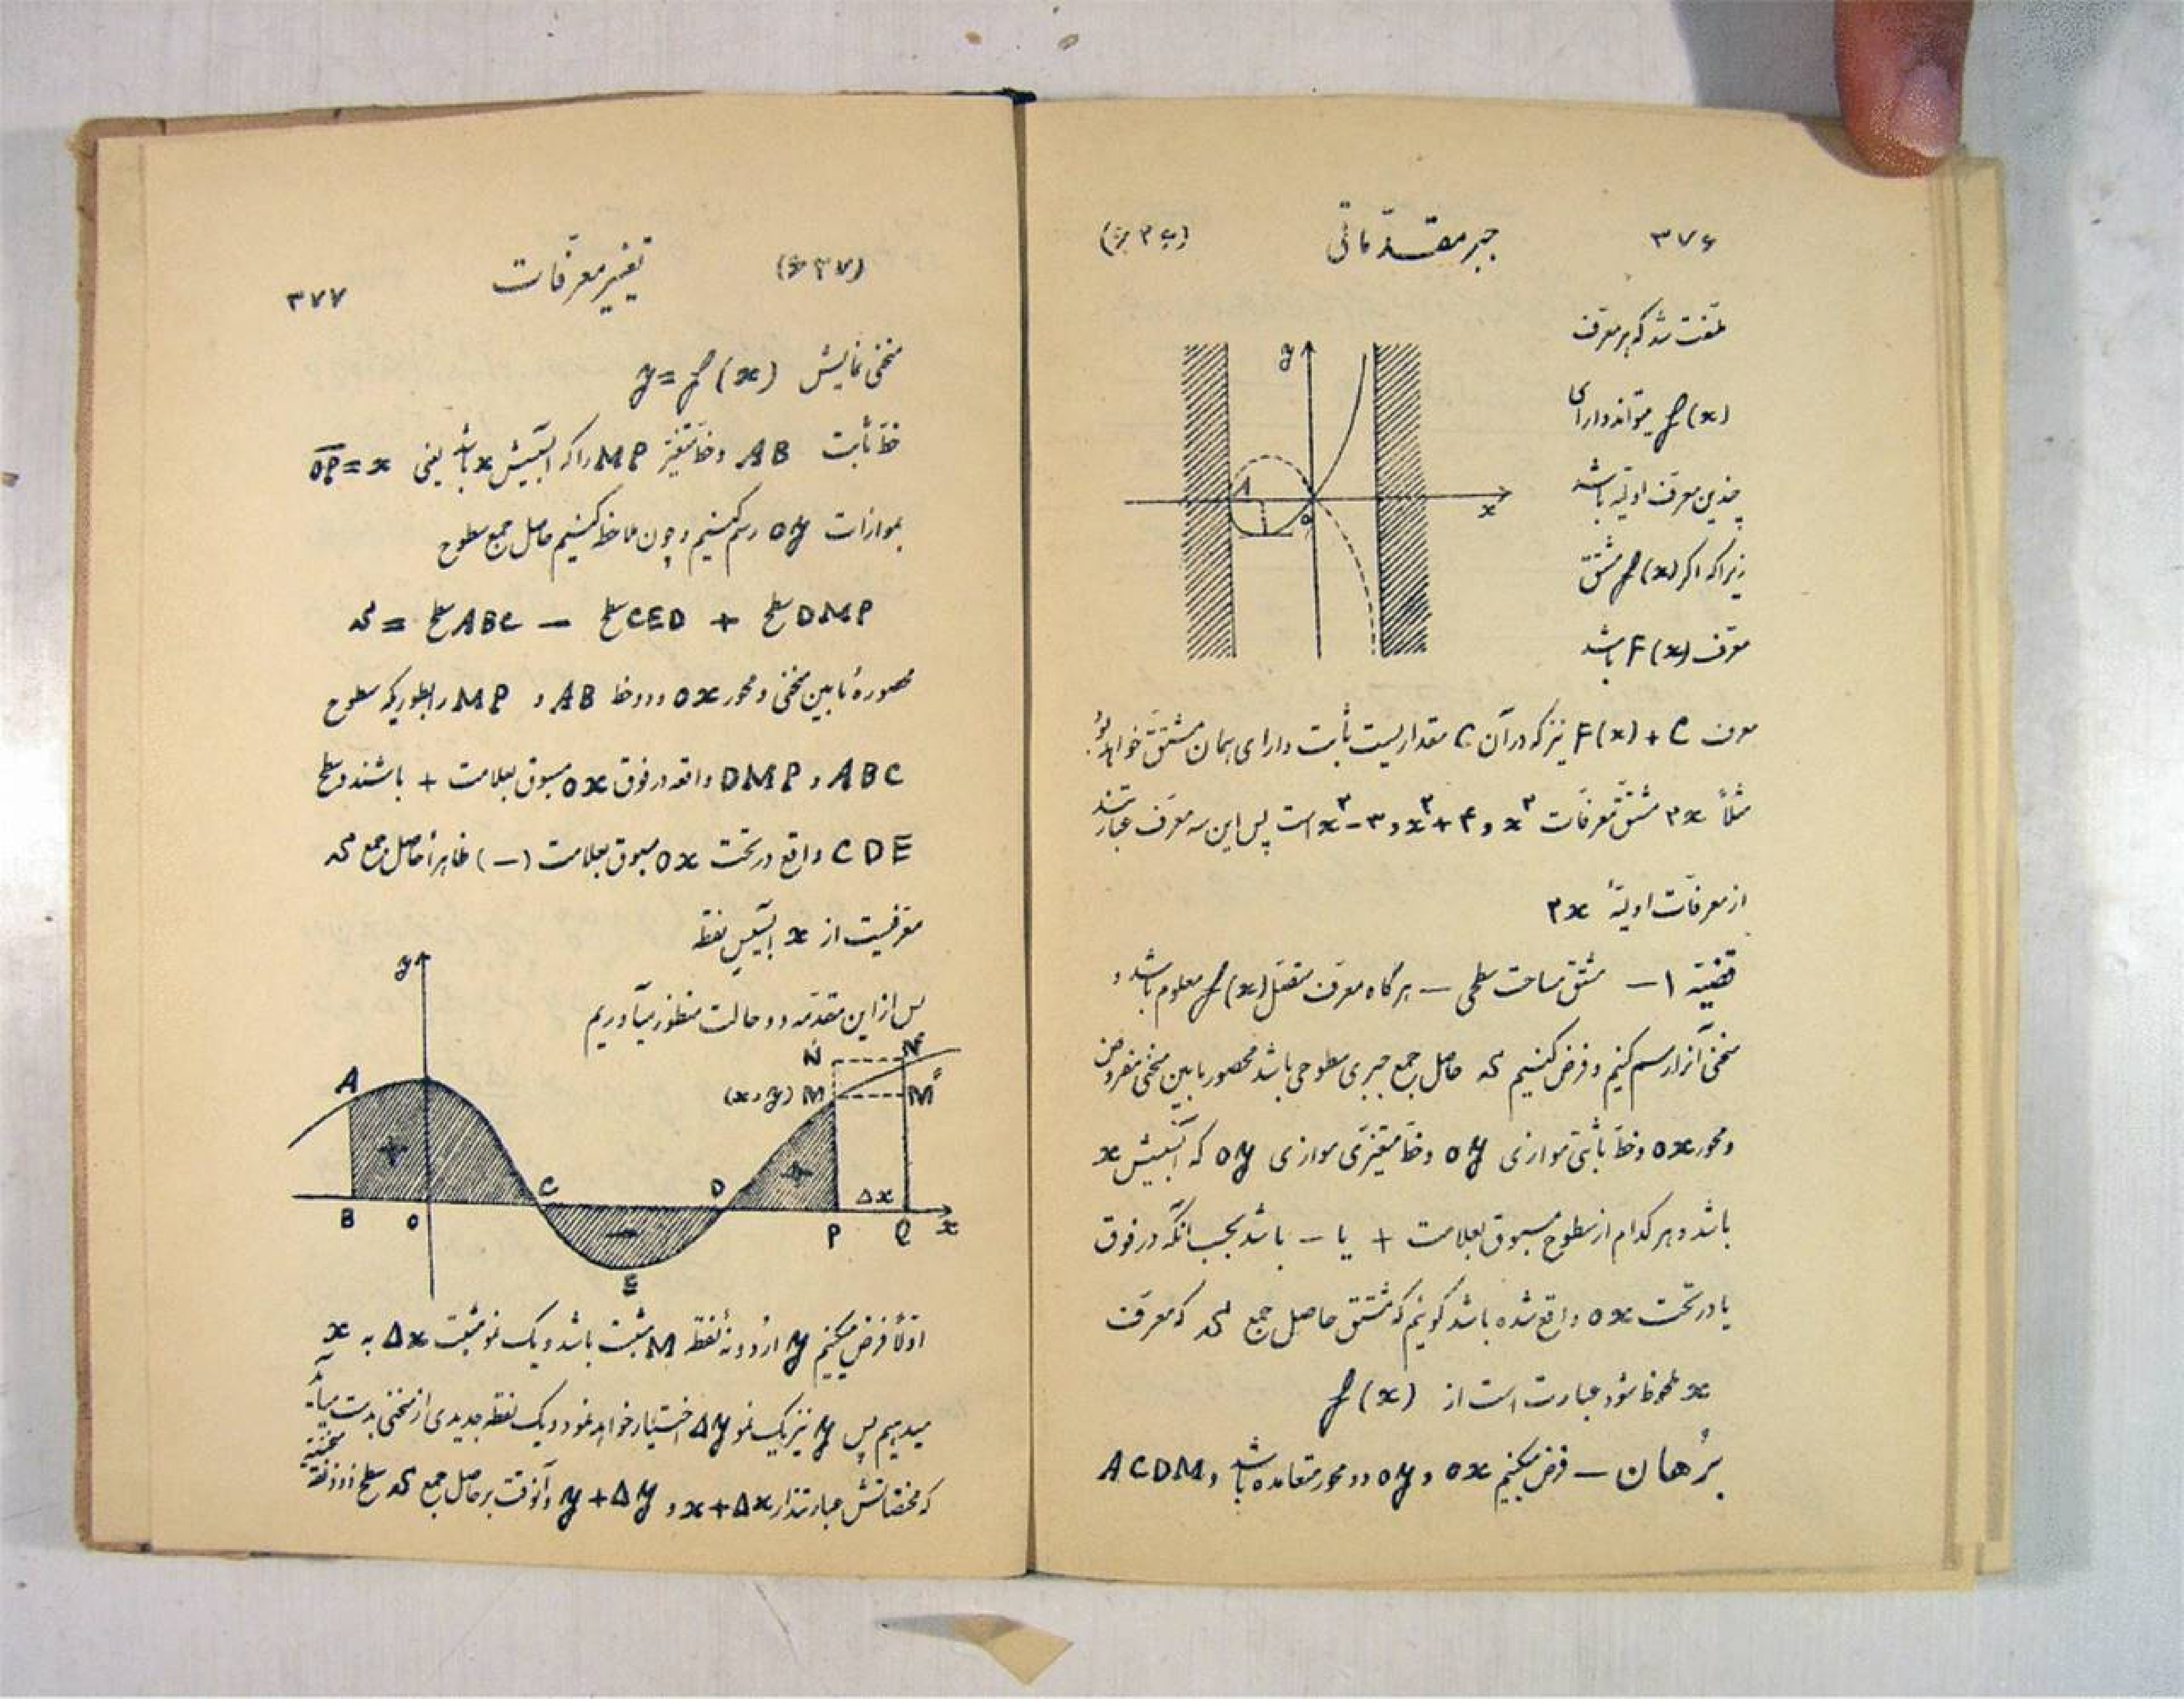 ۳۷۶ جبر مقدّماتی (۳۶ §)
ملتفت شد که هر معرّف
f(x) میتواند دارای
چندین معرّف اولیّه باشد
زیرا که اگر f(x) مشتق
معرّف F(x) باشد
معرف F(x)+C نیز که در آن C مقداریست ثابت دارای همان مشتقّ خواهد بود
مثلاً ۳x مشتقّ معرفّات x۳ و x۳+۴ و x۳-۳ است پس این سه معرّف عبارتند
از معرفّات اولیّهٔ ۳x
قضیّه ۱ – مشتقّ مساحت سطحی – هر گاه معرّف متصّل f(x) معلوم باشد و
منحنی آنرا رسم کنیم و فرض کنیم که حاصل جمع جبری سطوحی باشد محصور ما بین منحنی مفروض
و محور ox و خطّ ثابتی موازی oy و خطّ متغیّری موازی oy که آبسیسش x
باشد و هر کدام از سطوح مسبوق بعلامت + یا – باشد بحسب آنکه در فوق
یا در تحت ox واقع شده باشد گوئیم که مشتقّ حاصل جمع که معرّف
x ملحوظ شود عبارت است از f(x)
برُهان – فرض میکنیم ox و oy دو محور متعامده باشد و ACDM
y
A
o
x
(۳۷ §) تغییر معرّفات ۳۷۷
منحنی نمایش y=f(x)
خطّ ثابت AB و خطّ متغیّر MP را که آبسیسش x باشد یعنی OP=x
بموازات oy رسم کنیم و چون ملاحظه کنیم حاصل جمع سطوح
= سطح ABC – سطح CED + سطح DMP
محصورهٔ ما بین منحنی و محور ox و دو خط AB و MP را بطوریکه سطوح
ABC و DMP واقعه در فوق ox مسبوق بعلامت + باشند و سطح
CDE واقع در تحت ox مسبوق بعلامت (–) ظاهراً حاصل جمع
معرّفیست از x آبسیس نقطه
پس از این مقدّمه دو حالت منظور میآوریم
y
A
N'
N
(x,y) M
M'
+
+
–
C
D
Δx
B
o
P
Q
x
E
اوّلاً فرض میکنیم y اردونهٔ نقطه M مثبت باشد و یک نمو مثبت Δx به x
میدهیم پس y نیز یک نمو Δy اختیار خواهد نمود و یک نقطه جدیدی از منحنی بدست میآید
که مختصّاتش عبارتند از x+Δx و y+Δy و آنوقت بر حاصل جمع سطح ذوذنقه
منحنیّه